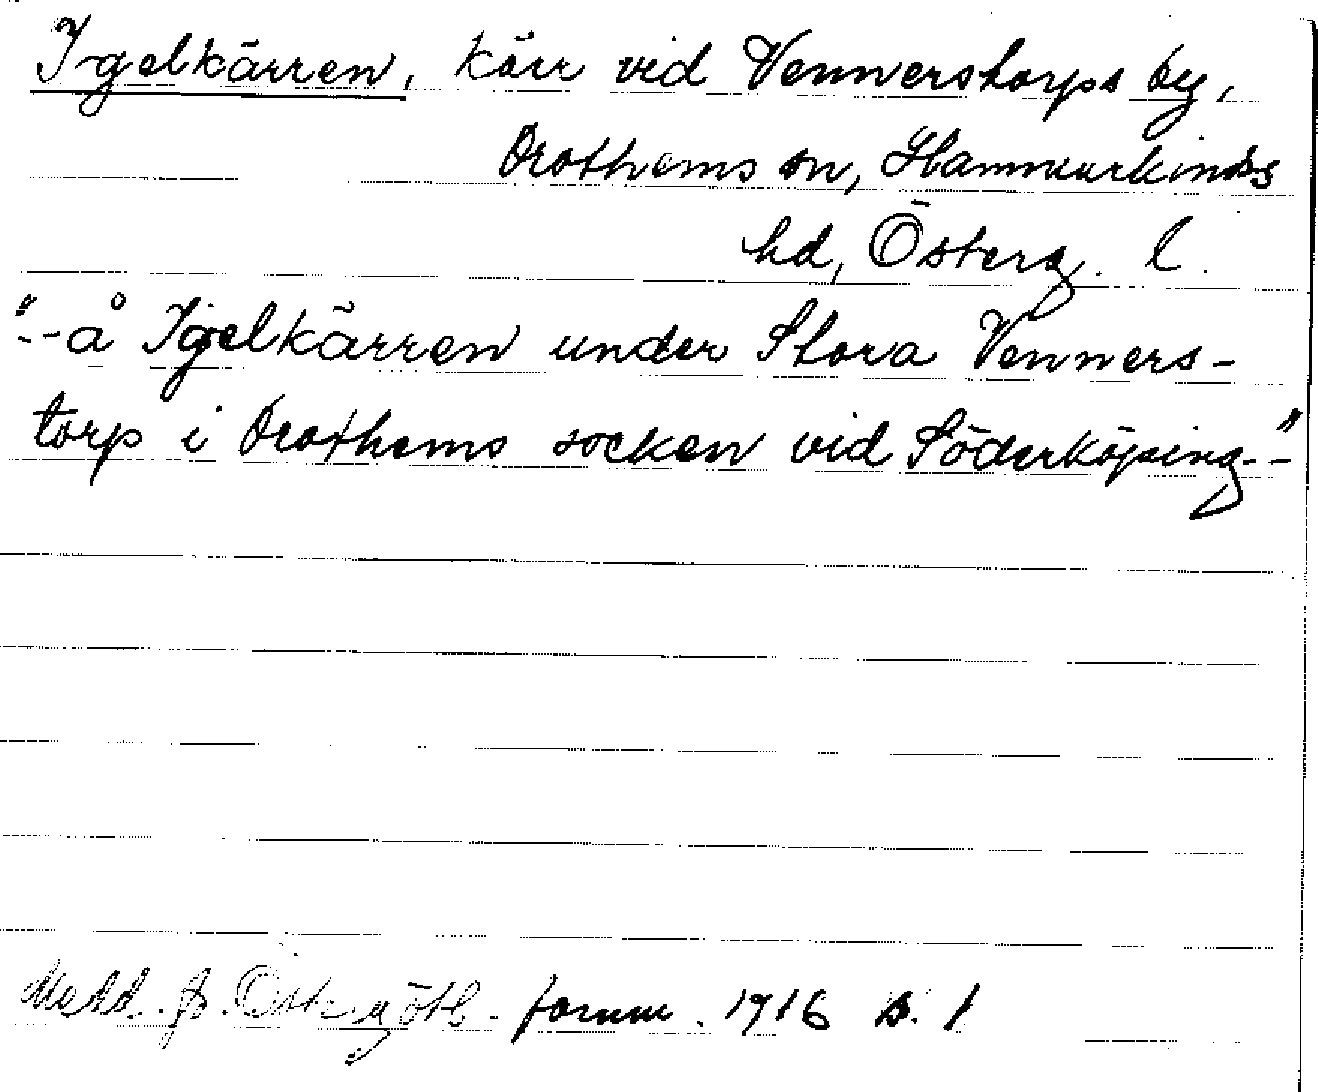 Igelkärren, kärr vid Vennerstorps by,
Drothems sn, Hammarkinds
hd, Österg. l.
"--å Igelkärren under Stora Venners-
torp i Drothems socken vid Söderköping--"
Medd. fr. Östergötl. fornm. 1916 s. 1